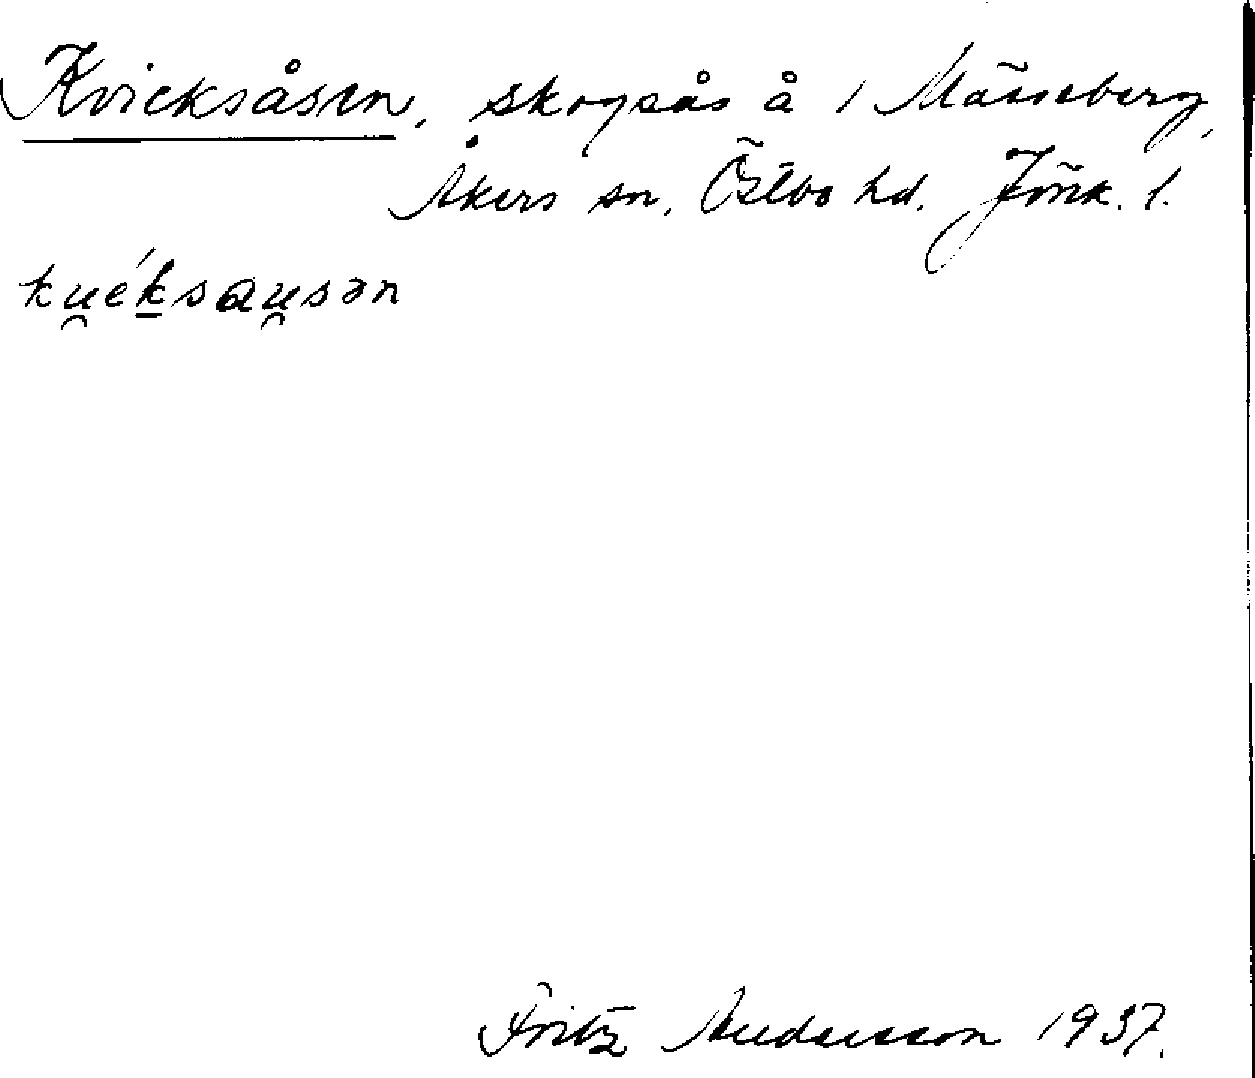 Kvicksåsen, skogsås å 1 Mässeberg,
Åkers sn, Östbo hd. Jönk. l.
ku̯éksau̯sən
Fritz Andersson 1937.